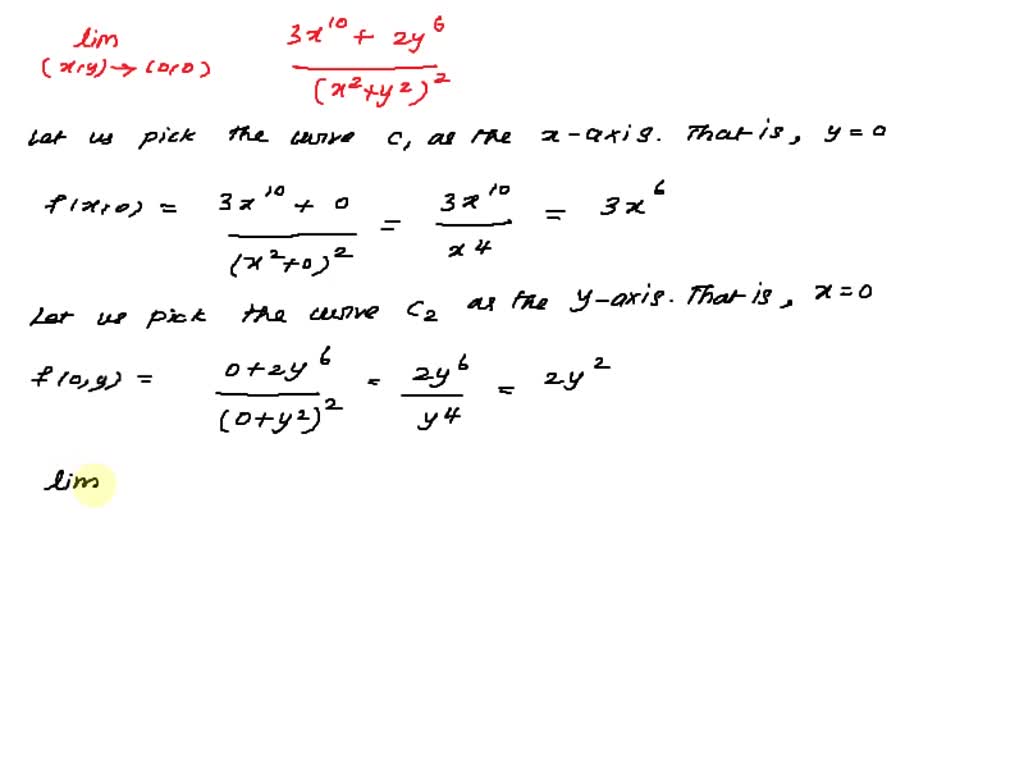 lim (x,y)→(0,0) 3x^10 + 2y^6 / (x^2+y^2)^2
Let us pick the curve C1 as the x-axis. That is, y=0
f(x,0) = 3x^10 + 0 / (x^2+0)^2 = 3x^10 / x^4 = 3x^6
Let us pick the curve C2 as the y-axis. That is, x=0
f(0,y) = 0+2y^6 / (0+y^2)^2 = 2y^6 / y^4 = 2y^2
lim